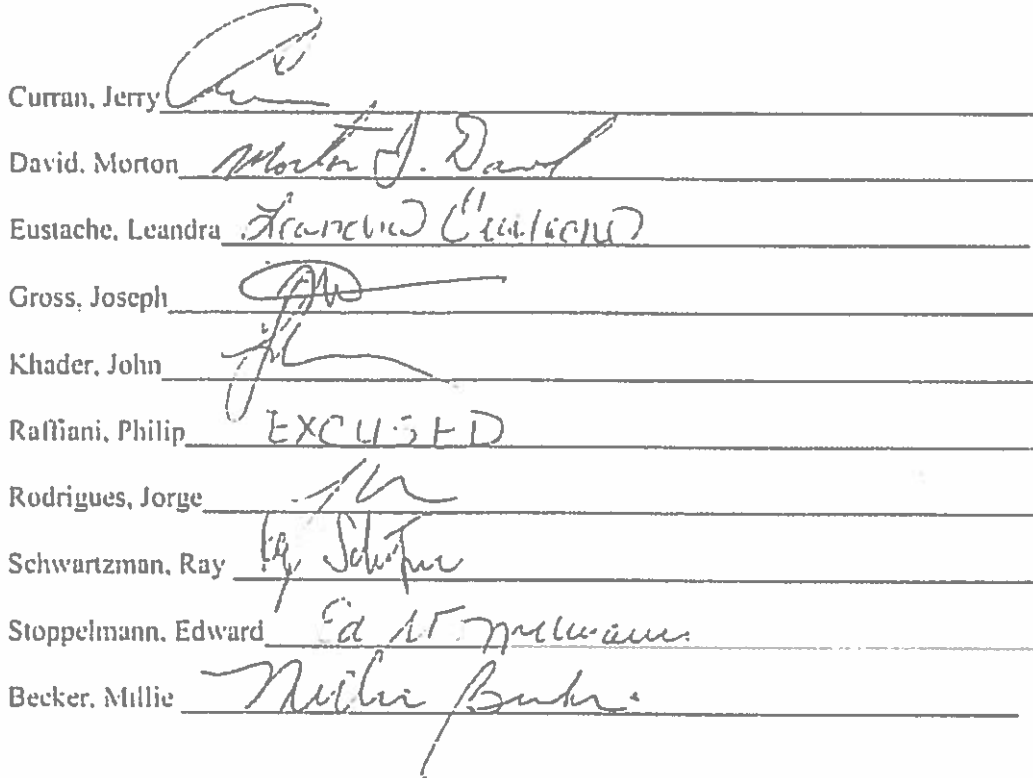 Curran, Jerry
David, Morton Morton J. David
Eustache, Leandra Leandra Eustache
Gross, Joseph
Khader, John
Raffiani, Philip EXCUSED
Rodrigues, Jorge
Schwartzman, Ray
Stoppelmann, Edward Ed
Becker, Millie Millie Becker